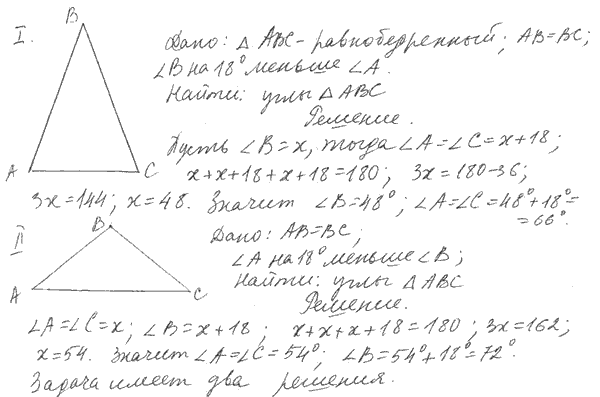 I.
B
Дано: △ ABC - равнобедренный; AB=BC;
∠B на 18° меньше ∠A.
Найти: углы △ ABC
Решение.
Пусть ∠B=x, тогда ∠A=∠C=x+18;
A C
x+x+18+x+18=180; 3x=180-36;
3x=144; x=48. Значит ∠B=48°; ∠A=∠C=48°+18°=
=66°.
II
B
Дано: AB=BC;
∠A на 18° меньше ∠B;
Найти: углы △ ABC
A C
Решение.
∠A=∠C=x; ∠B=x+18; x+x+x+18=180; 3x=162;
x=54. Значит ∠A=∠C=54°; ∠B=54°+18°=72°.
Задача имеет два решения.